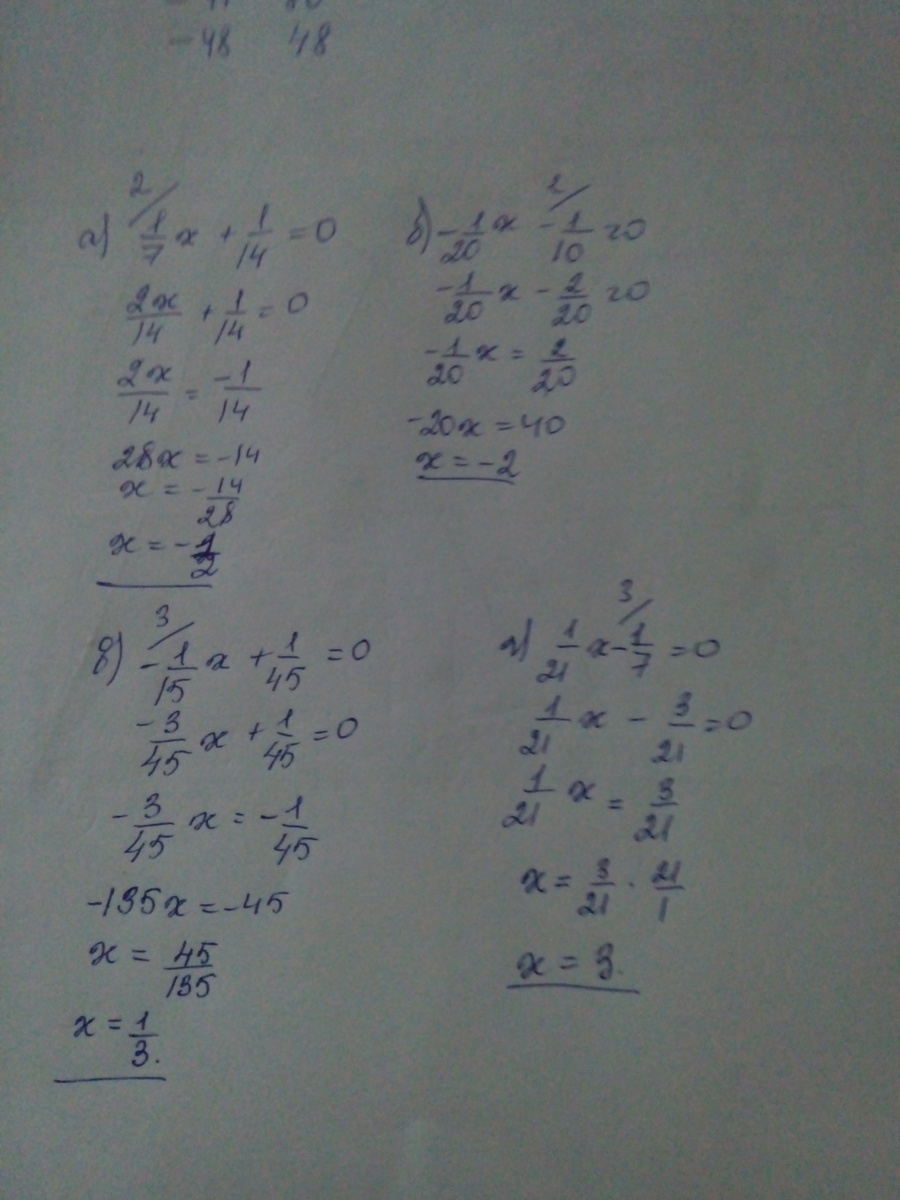 -48 48
а) 2/ 1/7 x + 1/14 = 0
2x/14 + 1/14 = 0
2x/14 = -1/14
28x = -14
x = -14/28
x = -1/2
б) -1/20 x - 2/ 1/10 = 0
-1/20 x - 2/20 = 0
-1/20 x = 2/20
-20x = 40
x = -2
в) 3/ -1/15 x + 1/45 = 0
-3/45 x + 1/45 = 0
-3/45 x = -1/45
-135x = -45
x = 45/135
x = 1/3.
г) 1/21 x - 3/ 1/7 = 0
1/21 x - 3/21 = 0
1/21 x = 3/21
x = 3/21 · 21/1
x = 3.